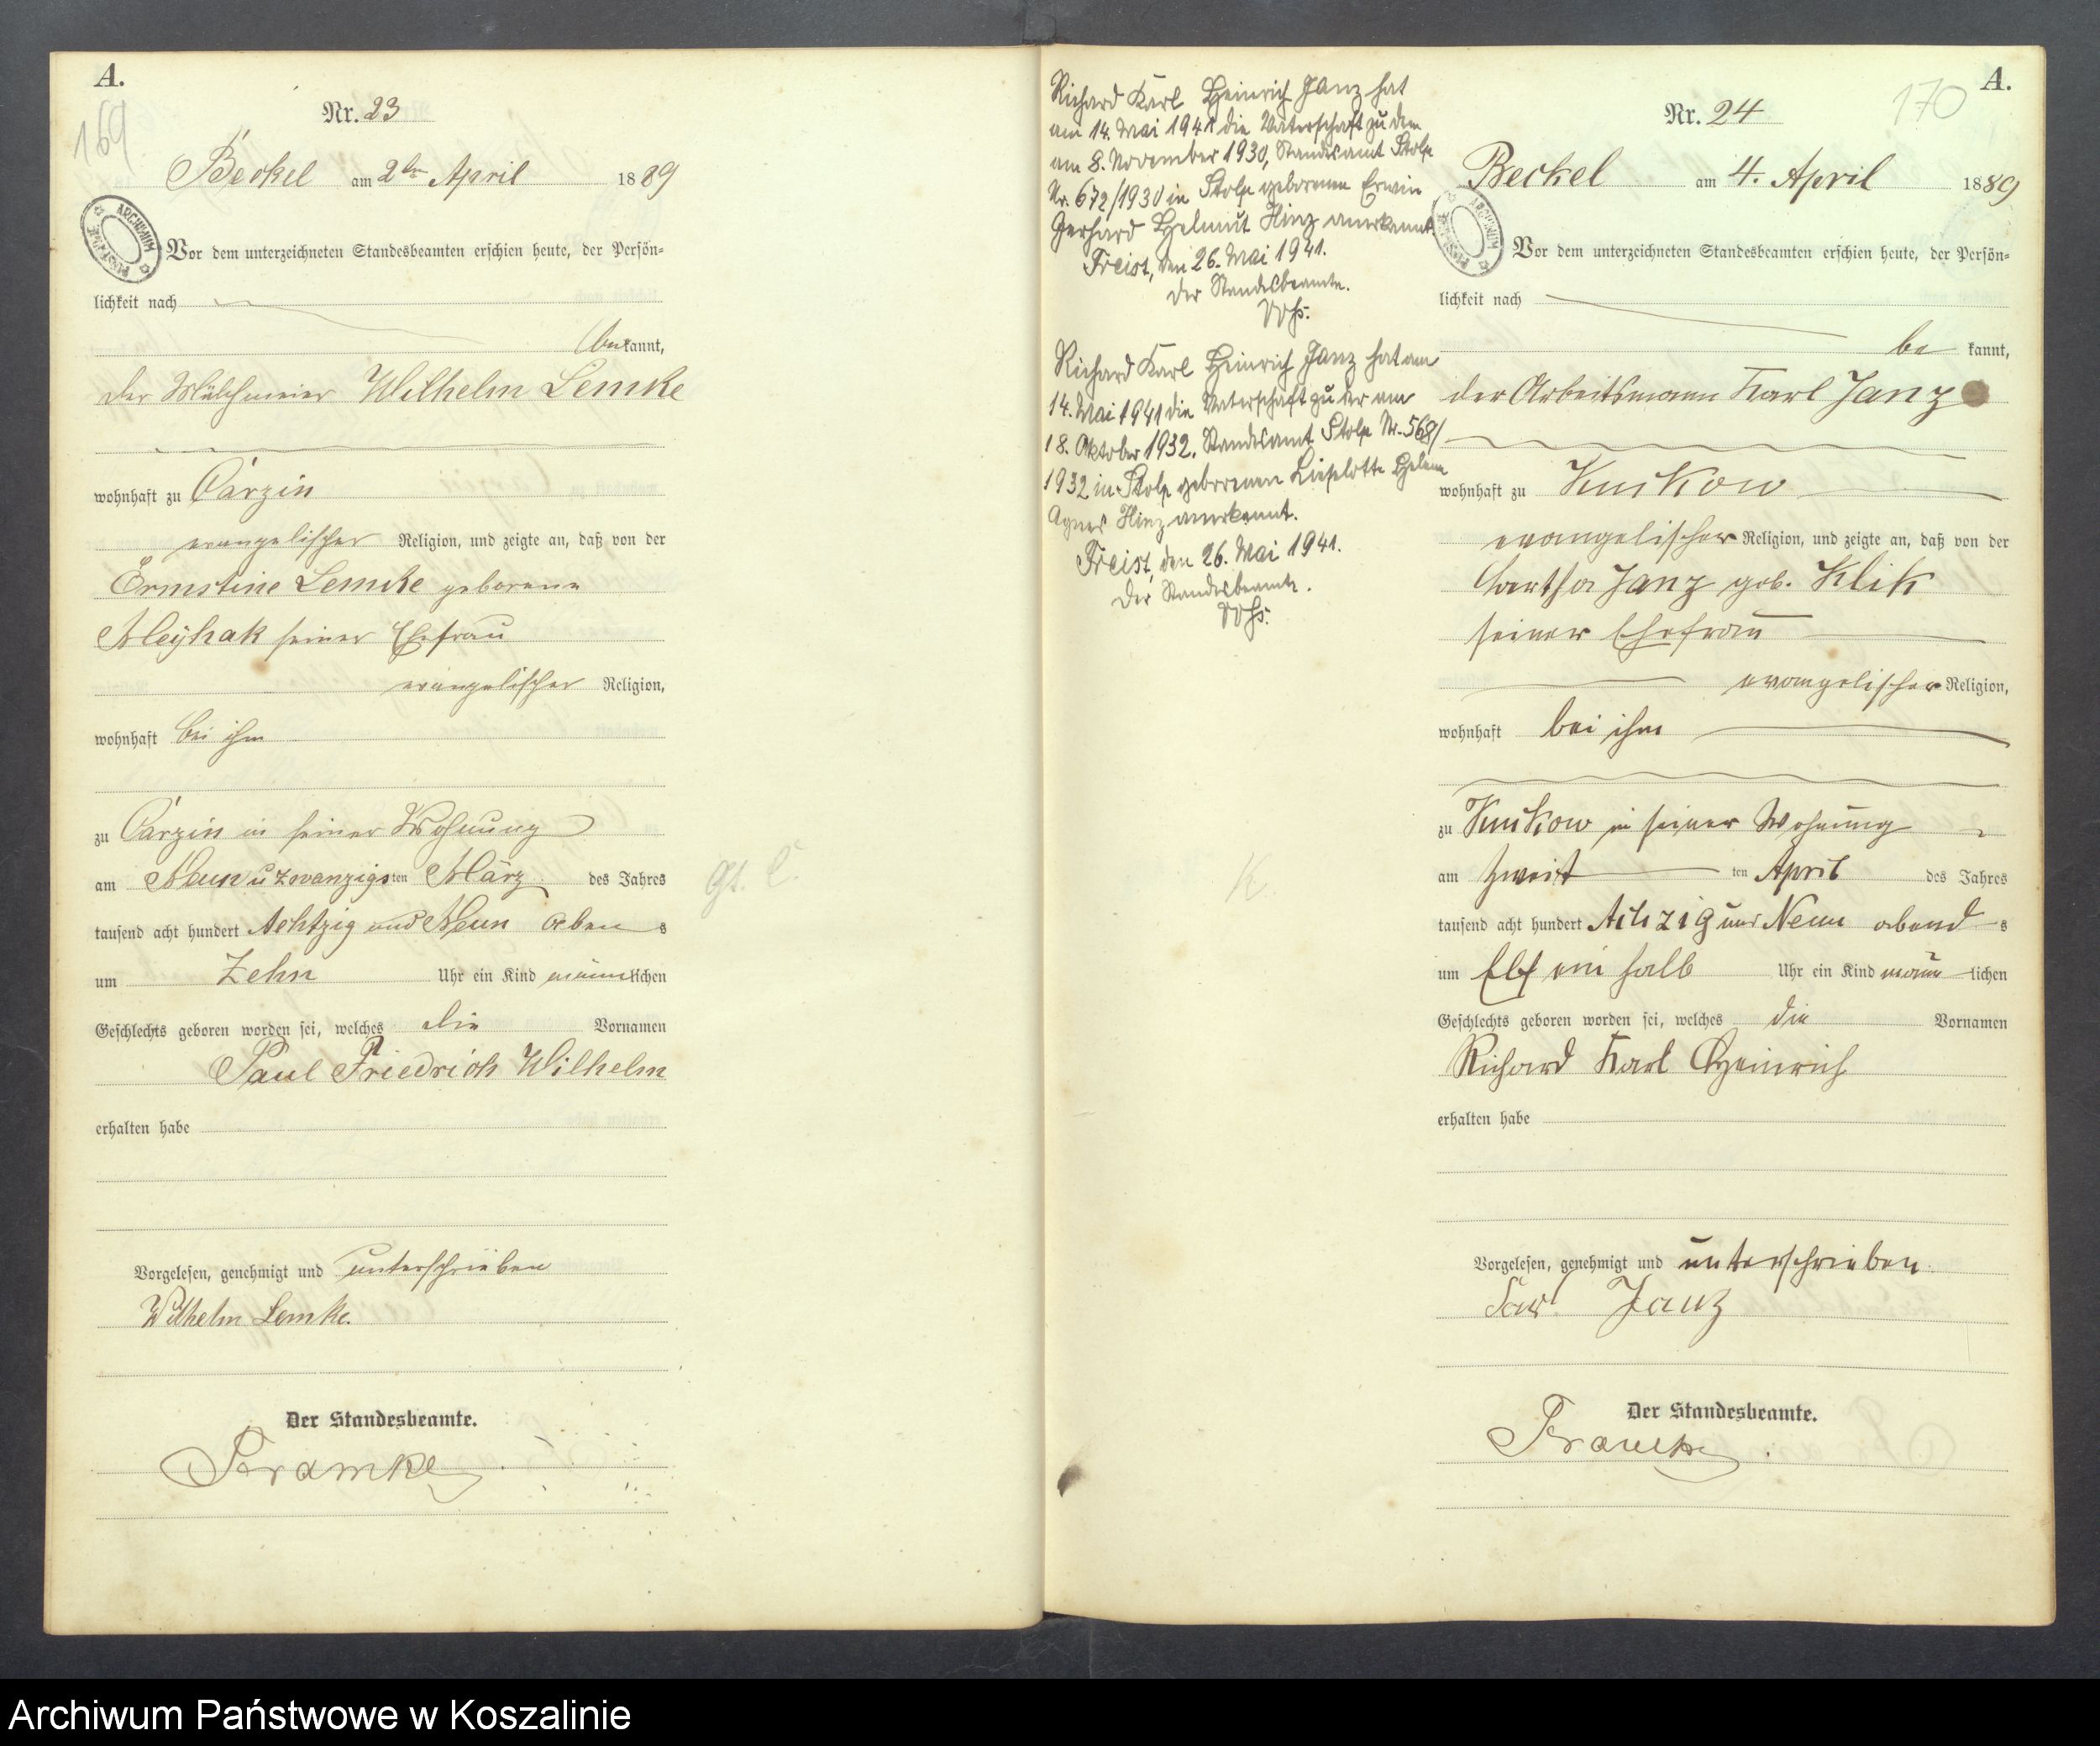 A.
169
Nr. 23
Beckel am 2ten April 1889
Vor dem unterzeichneten Standesbeamten erschien heute, der Persön-
lichkeit nach
bekannt,
der Wilhelm Lemke
wohnhaft zu Carzin
evangelischer Religion, und zeigte an, daß von der
Ernestine Lemke geborene
seiner Ehefrau
evangelischer Religion,
wohnhaft bei ihm
zu Carzin in seiner Wohnung
am Neun u zwanzigsten März des Jahres
tausend acht hundert Achtzig und Neun Abends
um Zehn Uhr ein Kind männlichen
Geschlechts geboren worden sei, welches die Vornamen
Paul Friedrich Wilhelm
erhalten habe
Vorgelesen, genehmigt und unterschrieben
Wilhelm Lemke.
Der Standesbeamte.
ARCHIWUM
Richard Karl Heinrich Janz hat
am 14. Mai 1941 die Vaterschaft zu dem
am 8. November 1930, Standesamt Stolp
Nr. 672/1930 in Stolp geborenen Erwin
Gerhard Helmut Hinz anerkannt.
Freist, den 26. Mai 1941.
Der Standesbeamte.
Richard Karl Heinrich Janz hat am
14. Mai 1941 die Vaterschaft zu der am
18. Oktober 1932, Standesamt Stolp Nr. 568/
1932 in Stolp geborenen Lieselotte Helene
Agnes Hinz anerkannt.
Freist, den 26. Mai 1941.
Der Standesbeamte.
K.
A.
170
Nr. 24
Beckel am 4. April 1889
Vor dem unterzeichneten Standesbeamten erschien heute, der Persön-
lichkeit nach
bekannt,
der Arbeitsmann Karl Janz
wohnhaft zu Kuskow
evangelischer Religion, und zeigte an, daß von der
Janz geb. Klik
seiner Ehefrau
evangelischer Religion,
wohnhaft bei ihm
zu Kuskow in seiner Wohnung
am zweitten April des Jahres
tausend acht hundert Achzig und Neun abends
um Elf ein halb Uhr ein Kind männlichen
Geschlechts geboren worden sei, welches die Vornamen
Richard Karl Heinrich
erhalten habe
Vorgelesen, genehmigt und unterschrieben
Karl Janz
Der Standesbeamte.
Archiwum Państwowe w Koszalinie